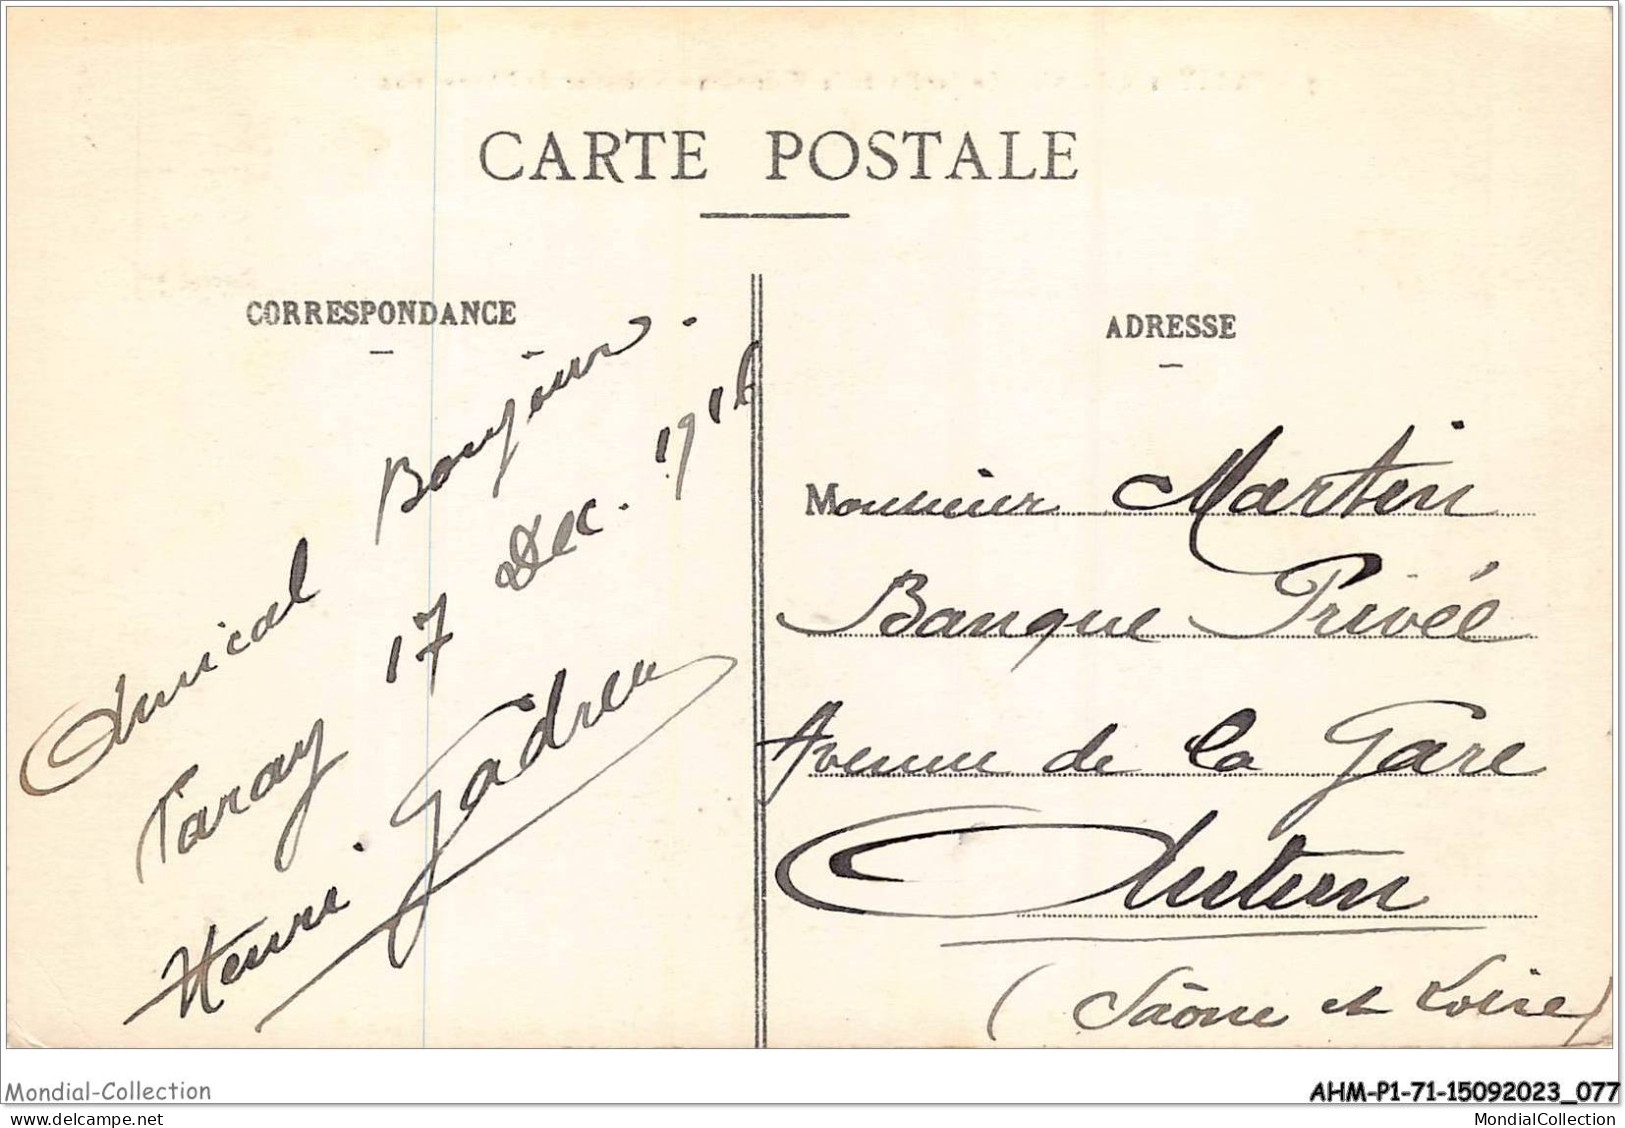 CARTE POSTALE
CORRESPONDANCE
Amical Bonjour.
Paray 17 Dec. 1916
Henri Gadreau
ADRESSE
Monsieur Martin
Banque Privée
Avenue de la Gare
Autun
(Saône et Loire)
Mondial-Collection
AHM-P1-71-15092023_077
MondialCollection